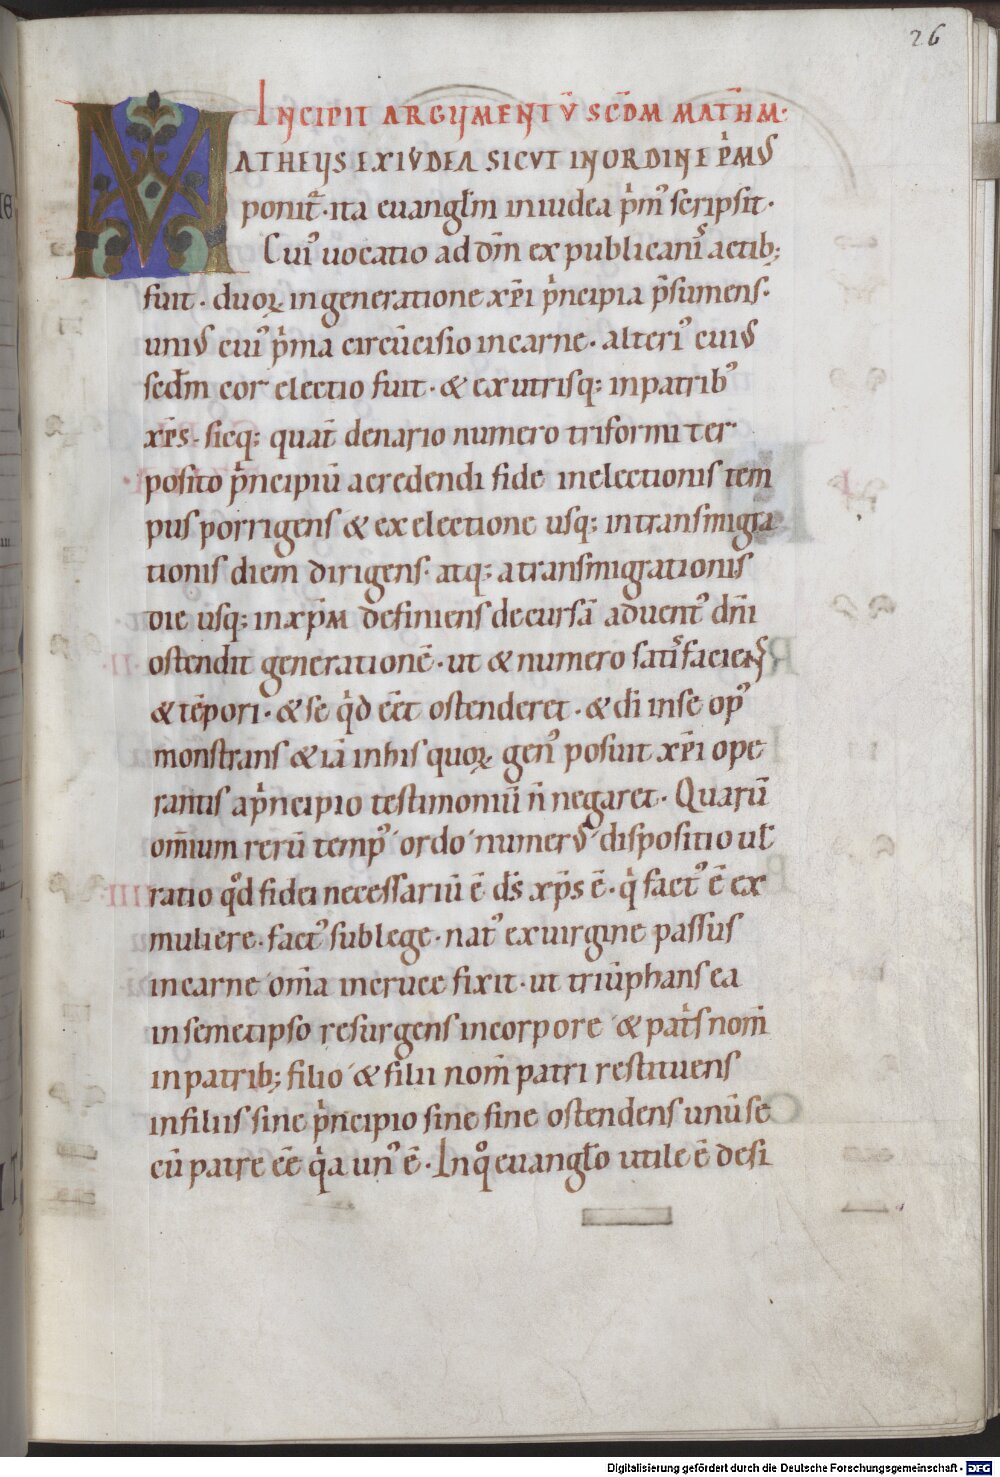 26
INCIPIT ARGUMENTŪ SCDM̄ MATHM̄·
MATHEUS EX IUDEA SICUT IN ORDINE P̄MUS
ponit᷑· ita euangl̄m in iudea p̍mꝰ scripsit·
Cuiꝰ uocatio ad dm̄ ex publicanis actib;
fuit· duoꝝ in generatione xp̄i p̍ncipia p̄sumens·
uniꝰ cuiꝰ p̍ma circūcisio in carne· alteriꝰ cuiꝰ
secdm̄ cor electio fuit· & ex utrisq; in patribꝰ
xp̄s· sicq; quat̄ denario numero triformiter
posito p̍ncipiū a credendi fide in electionis tem
pus porrigens & ex electione usq; in transmigra
tionis diem dirigens· atq; a transmigrationis
die usq; in xp̄m definiens decursā aduentꝰ dn̄i
ostendit generationē· ut & numero satisfaciens
& tēpori· & se q̍d ēēt ostenderet· & di in se opꝰ
monstrans & iā in his quoꝝ genꝰ posuit xp̄i ope
rantis a p̍ncipio testimoniū n̄ negaret· Quarū
om̄ium rerū tempꝰ ordo numerꝰ dispositio ul̄
ratio qd̊ fidei necessariū ē ds̄ xp̄s ē· q̍ factꝰ ē ex
muliere· factꝰ sub lege· natꝰ ex uirgine passus
in carne om̄a in cruce fixit· ut triūphans ea
in semetipso resurgens in corpore & pat̍s nom̄
in patrib; filio & filii nom̄ patri restituens
in filiis sine p̍ncipio sine fine ostendens unū se
cū patre ēē q̍a unꝰ ē· In qͦ euangl̄o utile ē desi
Digitalisierung gefördert durch die Deutsche Forschungsgemeinschaft - DFG